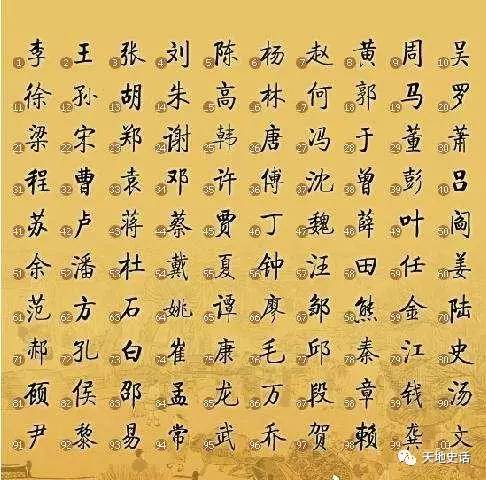 1 李 2 王 3 张 4 刘 5 陈 6 杨 7 赵 8 黄 9 周 10 吴
11 徐 12 孙 13 胡 14 朱 15 高 16 林 17 何 18 郭 19 马 20 罗
21 梁 22 宋 23 郑 24 谢 25 韩 26 唐 27 冯 28 于 29 董 30 萧
31 程 32 曹 33 袁 34 邓 35 许 36 傅 37 沈 38 曾 39 彭 40 吕
41 苏 42 卢 43 蒋 44 蔡 45 贾 46 丁 47 魏 48 薛 49 叶 50 阎
51 余 52 潘 53 杜 54 戴 55 夏 56 钟 57 汪 58 田 59 任 60 姜
61 范 62 方 63 石 64 姚 65 谭 66 廖 67 邹 68 熊 69 金 70 陆
71 郝 72 孔 73 白 74 崔 75 康 76 毛 77 邱 78 秦 79 江 80 史
81 顾 82 侯 83 邵 84 孟 85 龙 86 万 87 段 88 章 89 钱 90 汤
91 尹 92 黎 93 易 94 常 95 武 96 乔 97 贺 98 赖 99 龚 100 文
天地史话